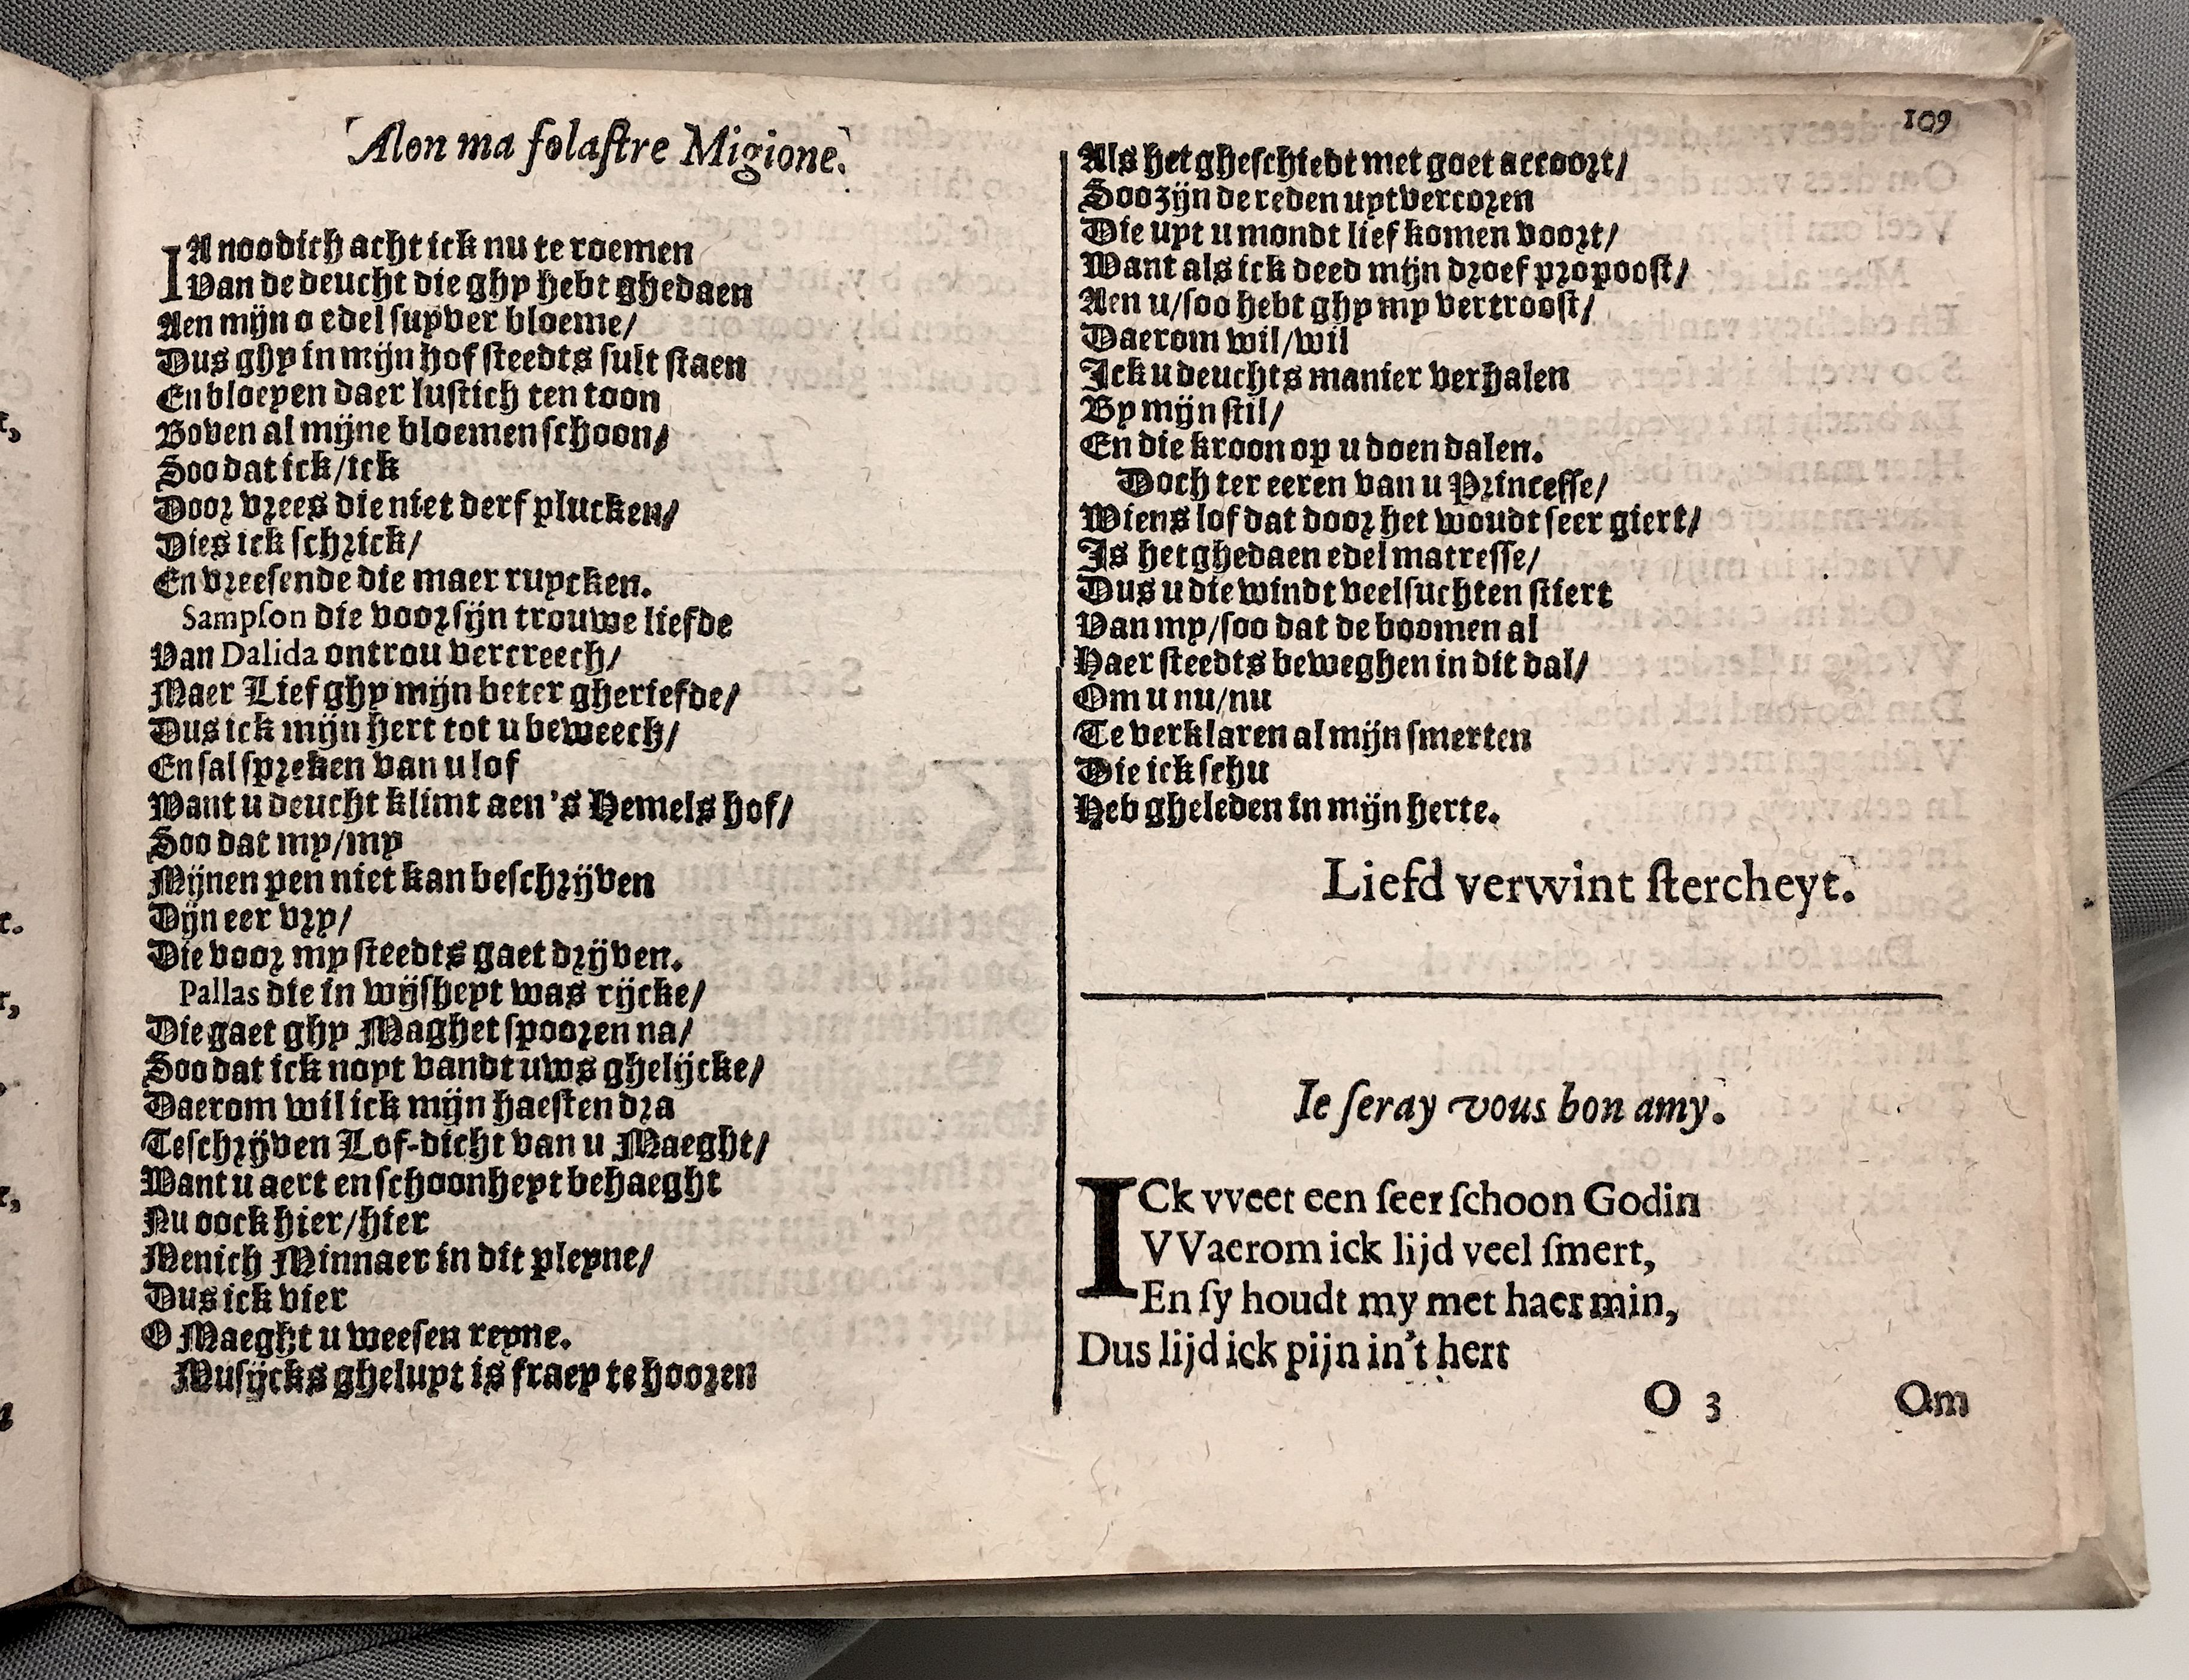 109
Alon ma folastre Migione.
IA noodich acht ick nu te roemen
Van de deucht die ghy hebt ghedaen
Aen mijn o edel suyver bloeme/
Dus ghy in mijn hof steedts sult staen
En bloeyen daer lustich ten toon
Boven al mijne bloemen schoon/
Soo dat ick/ick
Door vrees die niet derf plucken/
Dies ick schrick/
En vreesende die maer ruycken.
Sampson die voor sijn trouwe liefde
Van Dalida ontrou vercreech/
Maer Lief ghy mijn beter gheriefde/
Dus ick mijn hert tot u beweech/
En sal spreken van u lof
Want u deucht klimt aen 's Hemels hof/
Soo dat my/my
Mijnen pen niet kan beschrijven
Dijn eer vry/
Die voor my steedts gaet drijven.
Pallas die in wijsheyt was rijcke/
Die gaet ghy Maghet spooren na/
Soo dat ick noyt vandt uws ghelijcke/
Daerom wil ick mijn haesten dra
Te schrijven Lof-dicht van u Maeght/
Want u aert en schoonheyt behaeght
Nu oock hier/hier
Menich Minnaer in dit pleyne/
Dus ick vier
O Maeght u weesen reyne.
Musijcks gheluyt is fraey te hooren
Als het gheschiedt met goet accoort/
Soo zijn de reden uytvercoren
Die uyt u mondt lief komen voort/
Want als ick deed mijn droef propoost/
Aen u/soo hebt ghy my vertroost/
Daerom wil/wil
Ick u deuchts manier verhalen
By mijn stil/
En die kroon op u doen dalen.
Doch ter eeren van u Princesse/
Wiens lof dat door het woudt seer giert/
Is het ghedaen edel matresse/
Dus u die windt veel suchten stiert
Van my/soo dat de boomen al
Haer steedts beweghen in dit dal/
Om u nu/nu
Te verklaren al mijn smerten
Die ick schu
Heb gheleden in mijn herte.
Liefd verwint stercheyt.
Ie seray vous bon amy.
ICk vveet een seer schoon Godin
VVaerom ick lijd veel smert,
En sy houdt my met haer min,
Dus lijd ick pijn in't hert
O 3 Om